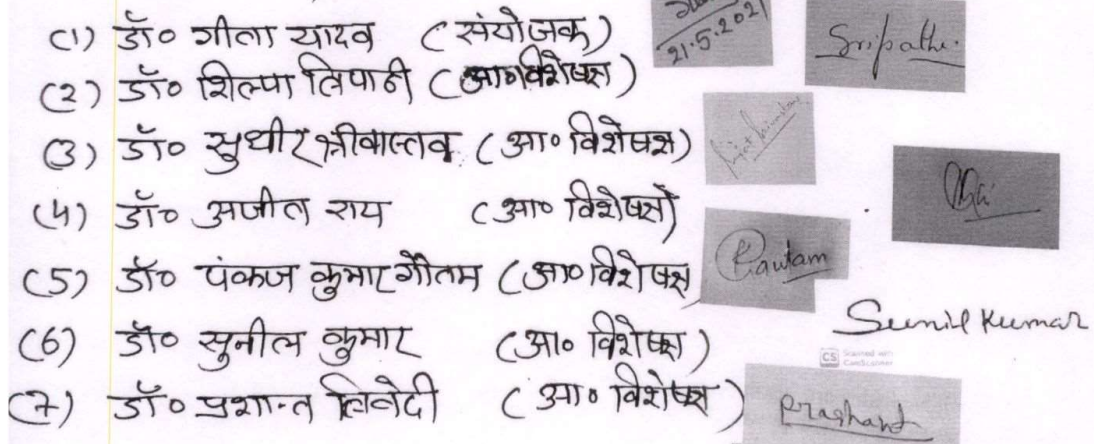 (1) डॉ० गीता यादव (संयोजक)
21.5.2021
Sripathi
(2) डॉ० शिल्पा त्रिपाठी (आ०विशेषज्ञ)
(3) डॉ० सुधीर श्रीवास्तव (आ० विशेषज्ञ)
(4) डॉ० अजीत राय (आ० विशेषज्ञ)
Rai
(5) डॉ० पंकज कुमार गौतम (आ० विशेषज्ञ
PGautam
(6) डॉ० सुनील कुमार (आ० विशेषज्ञ)
Sunil Kumar
CS Scanned with CamScanner
(7) डॉ० प्रशान्त त्रिवेदी (आ० विशेषज्ञ)
Prashant